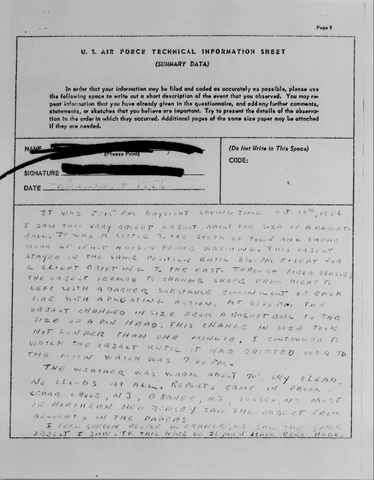 Page 9
U. S. AIR FORCE TECHNICAL INFORMATION SHEET
(SUMMARY DATA)
In order that your information may be filed and coded as accurately as possible, please use
the following space to write out a short description of the event that you observed. You may re-
peat information that you have already given in the questionnaire, and add any further comments,
statements, or sketches that you believe are important. Try to present the details of the observa-
tion in the order in which they occurred. Additional pages of the same size paper may be attached
if they are needed.
NAME
(Please Print)
(Do Not Write in This Space)
CODE:
SIGNATURE
DATE
IT WAS PM. DAYLIGHT SAVING TIME OCT. 1956
I SAW THIS VERY BRIGHT OBJECT ABOUT THE SIZE OF A BASKET-
BALL. IT WAS A LITTLE TO THE SOUTH OF TOWN AND THERE
WERE AT LEAST A DOZEN PEOPLE WATCHING. THIS OBJECT
STAYED IN THE SAME POSITION UNTIL PM EXCEPT FOR
A SLIGHT DRIFTING TO THE EAST. THROUGH FIELD GLASSES
THE OBJECT SEEMED TO CHANGE SHAPE FROM RIGHT TO
LEFT WITH A DARKER SUBSTANCE ON EACH
SIDE WITH A PULSATING ACTION. AT PM THE
OBJECT CHANGED IN SIZE FROM A BASKETBALL TO THE
SIZE OF A PIN HEAD. THIS CHANGE IN SIZE TOOK
NOT LONGER THAN ONE MINUTE. I CONTINUED TO
WATCH THE OBJECT UNTIL IT HAD DRIFTED OVER TO
THE MOON WHICH WAS 7:00 PM.
THE WEATHER WAS WARM ABOUT 70°. SKY CLEAR.
NO CLOUDS AT ALL. REPORTS CAME IN FROM
CEDAR GROVE, NJ, ORANGE, NJ, SUSSEX, NJ MOST
OF NORTHERN NEW JERSEY SAW THE OBJECT FROM
ACCOUNTS IN THE PAPERS
I PEOPLE IN ORANGE, NJ SAW THE SAME
OBJECT I SAW. IF THIS WERE SO IT MUST HAVE BEEN HUGE.